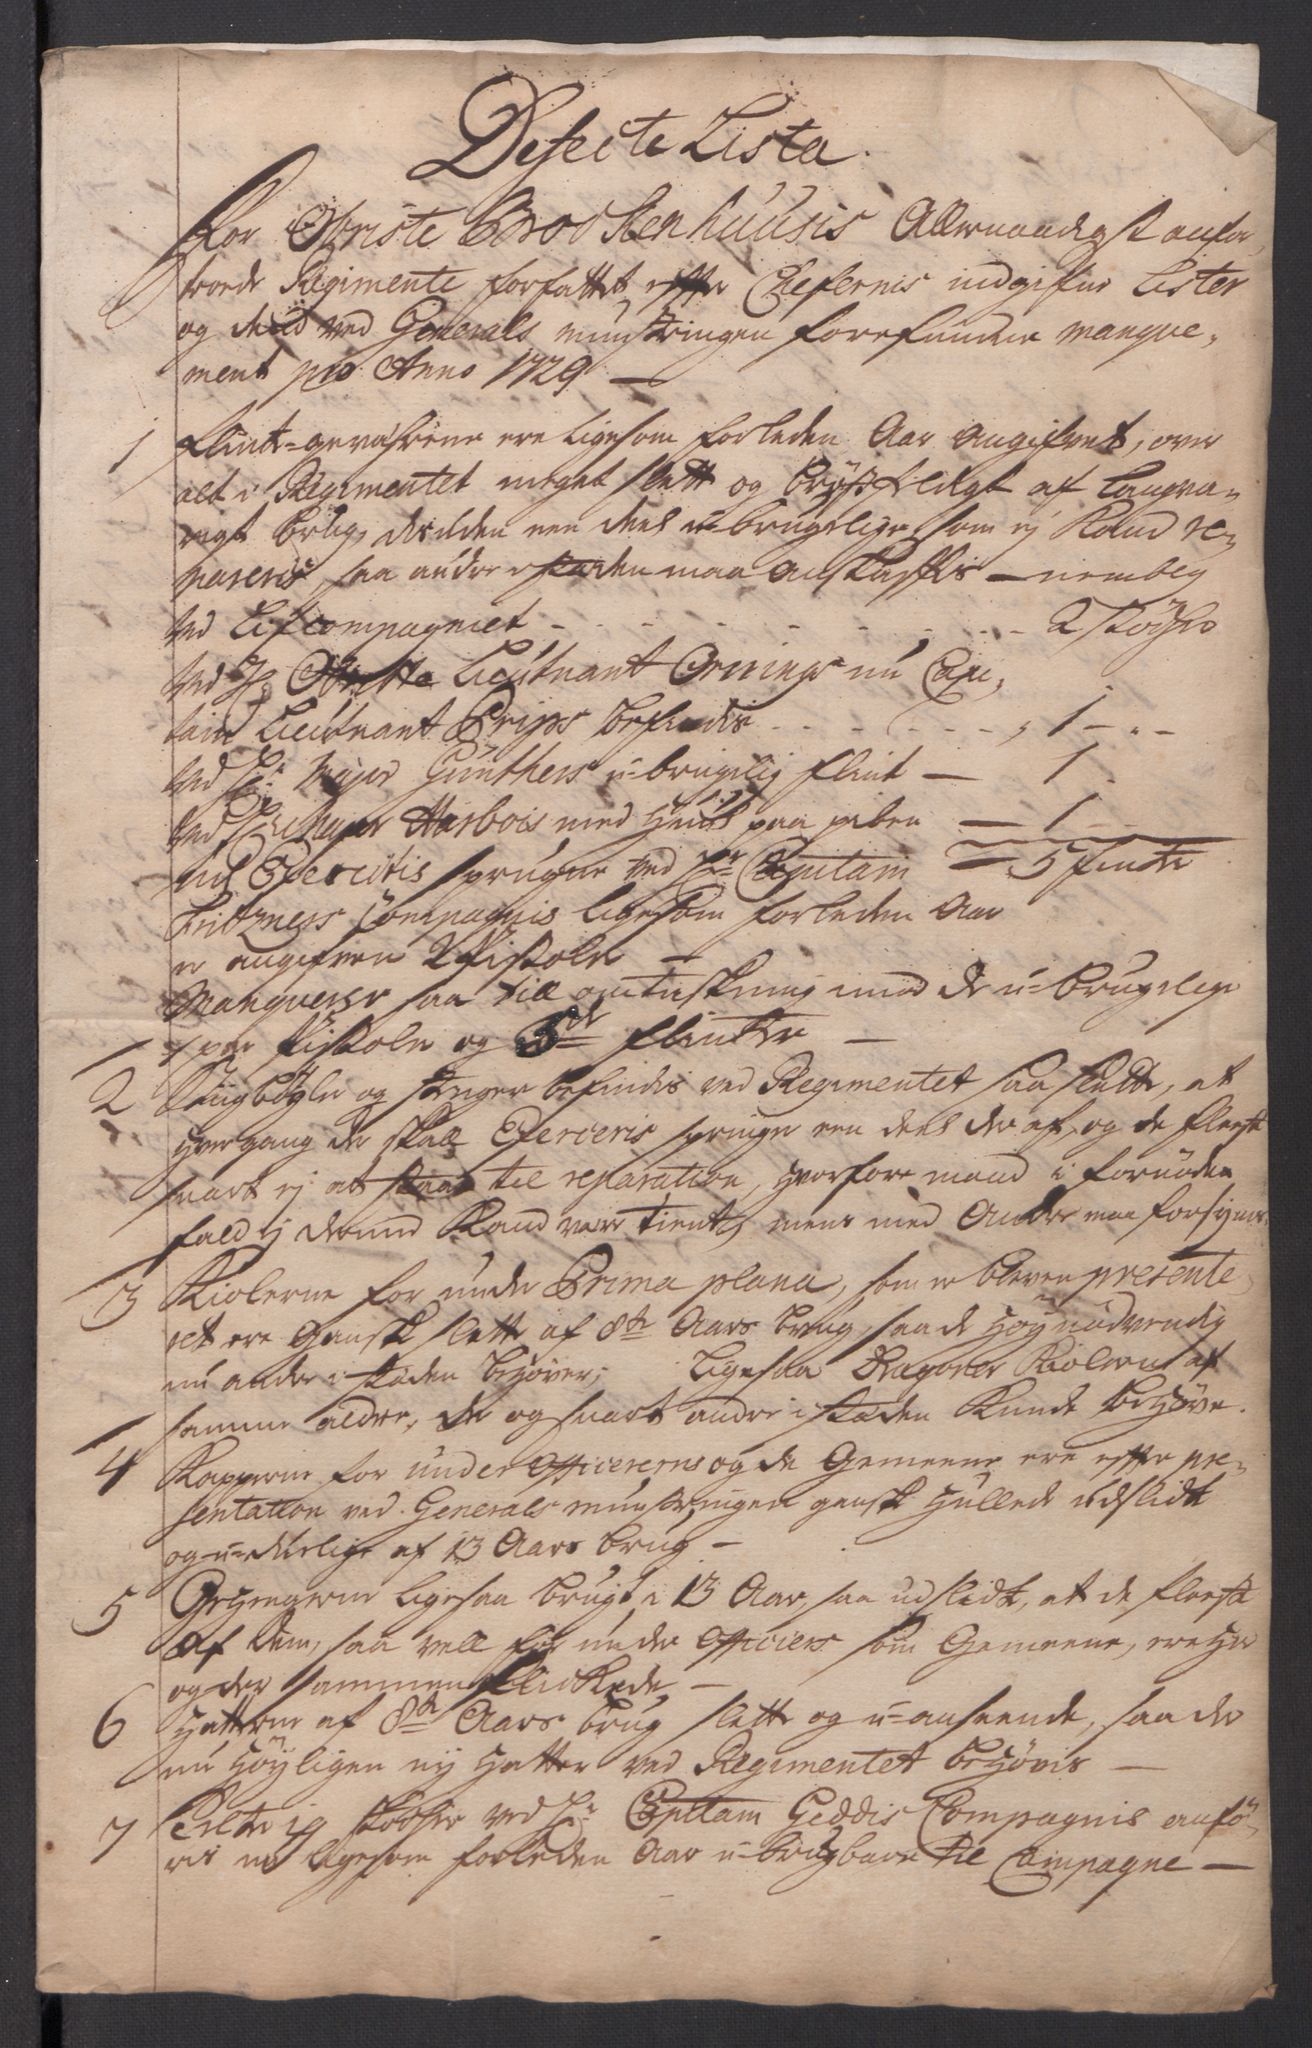 Defecte Lista.
For Obriste Brockenhuusis Allernaadigst anfor-
troede Regimente forfattet efter Chefernis indgifne Lister
og deris ved Generals munstringen forefundne manque-
ment pro Anno 1729 —
1 flint-geværene ere ligesom forleden Aar angifvet, over
alt i Regimentet meget slett og brøstfeldigt af langva-
rigt brug, desuden een deel u-brugelige som ej kand re-
pareris, saa andre i staden maa anskaffis — nembl.
ved Lifcompagniet - - - - - - - - - 2 stöcher
ved H. Obriste Lieutnant Grüners nu Capi-
tain Lieutnant Brips befindis - - - - - 1 - " -
ved Hr. Major Günthers u-brugelig flint — 1 -
ved Hr. Major Harbois med hull paa piben — 1 - -
ved Exercitis sprugne ved Hr. Capitam — 5 flinte
Fritzners Compagnis ligesom forleden Aar
er angifven 2 Pistoler —
Manquerer saa till omtuskning imod de u-brugelige
1 par Pistoler og 5de flinter —
2 Stigbøyler og stenger befindis ved Regimentet saa slette, at
hvergang der skall Exerceris springer een deel der af, og de fleeste
snart ej at staae til reparation, hvorfore mand i fornøden
fald ej dermed kand være tient, mens med Andre maa forsynes.
3 Kiolerne for under Prima plana, som er bleven presente-
ret ere gansk slette af 8te Aars brug, saa de høynødvendig
nu andre i staden behøver; Ligesaa Dragoner Kiolerne af
samme alder, de og snart andre i staden kunde behøve.
4 Kapperne for under officererne og de Gemeene ere efter pre-
sentation ved Generals munstringen gansk hullede udslidt
og u-dørlige af 13 Aars brug —
5 Gehengerne ligesaa brugt i 13 Aar, saa udslidt, at de fleeste
af dem, saa vell for under Officiers som Gemeene, ere her
og der sammenflickede —
6 Hatterne af 8te Aars brug slette og u-anseende, saa der
nu høyligen ny hatter ved Regimentet behøvis —
7 Telte ig stöcher ved Hr. Capitam Geddis Compagnis anfø-
ris nu ligesom forleden Aar u-brugbare til Campagne —